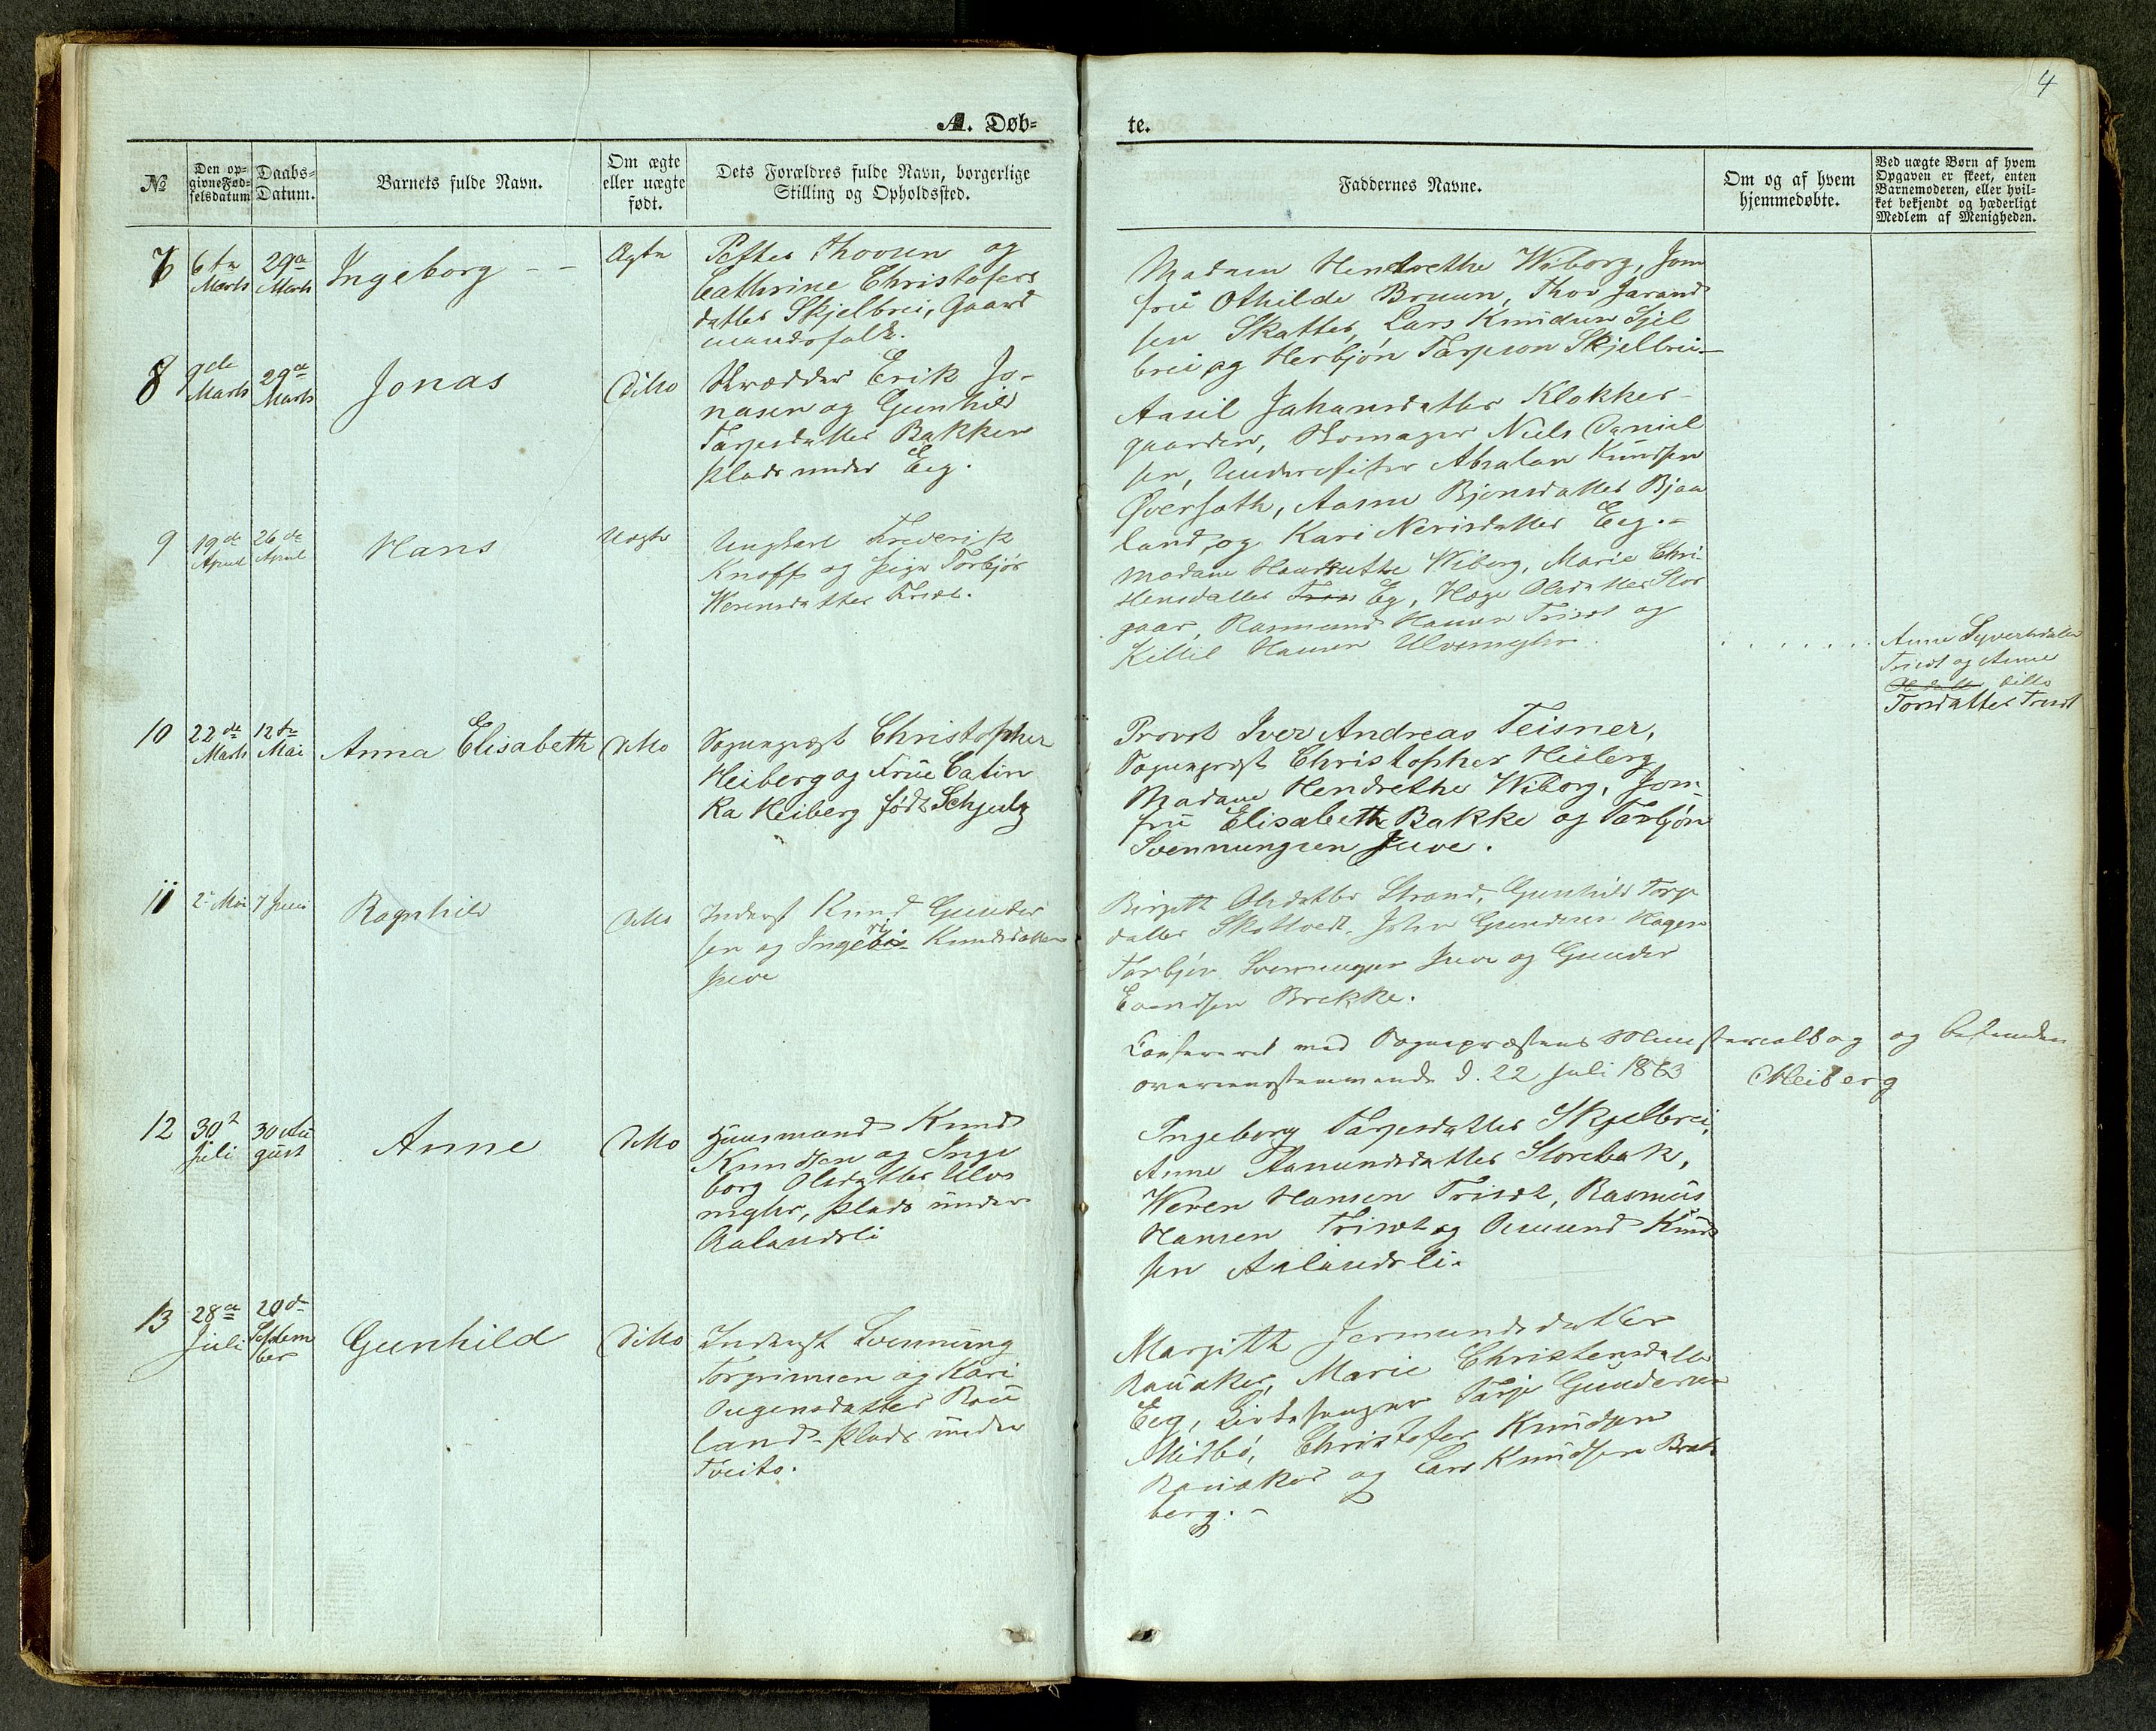 4
A. Døb-
te.
№
Den op-
givne Fød-
selsdatum
Daabs-
Datum.
Barnets fulde Navn.
Om ægte
eller uægte
født.
Dets Forældres fulde Navn, borgerlige
Stilling og Opholdssted.
Faddernes Navne.
Om og af hvem
hjemmedøbte.
Ved uægte Børn af hvem
Opgaven er skeet, enten
Barnemoderen, eller hvil-
ket bekjendt og hæderligt
Medlem af Menigheden.
7
6te
Marts
29de
Marts
Ingeborg - -
Ægte
Petter Thovsen og
Cathrine Christofers
datter Skjelbrei, Gaard
mandsfolk.
Madame Hendrethe Wiborg, Jom
fru Othilde Bruun, Thov Jarand
sen Skatter, Lars Knudsen Sjel
brei og Herbjøn Tarjeson Skjelbrei -
8
9de
Marts
29de
Marts
Jonas
Ditto
Skrædder Erik Jo-
nasen og Gunhild
Tarjesdatter Bakken
Plads under Eeg.
Aasil Johansdatter Klokker-
gaarden, Skomager Niels Daniel
sen, Underofficer Absalon Knudsen
Øversath, Aasne Bjensdatter Bjaa
land, og Kari Nerisdatter Eeg. -
9
19de
April
26de
April
Hans
Uægte
Ungkarl Frederik
Knoff og Pige Torbjør
Werensdatter Trisæt.
Madame Hendrethe Wiborg, Marie Chri-
stensdatter Eg, Hæge Olsdatter Stor
gaar, Rasmund Hansen Trisæt og
Kittil Hansen Ulvenæglen
. . . . . . .
Anne Syvertsdatter
Trisæt og Anne
ditto
Torsdatter Trisæt
10
22de
Marts
12te
Mai
Anna Elisabeth
Ditto
Sogneprest Christopher
Heiberg og Frue Catin
ka Heiberg født Schjelz
Provst Iver Andreas Teisner,
Sogneprest Christopher Heiberg
Madame Hendrethe Wiborg, Jom-
fru Elisabeth Bakke og Torbjøn
Svennungsen Juve.
11
2 Mai
7 Juni
Ragnhild
Ditto
Inderst Knud Gunder
sen og Ingeborg Knudsdatter
Juve
Birgith Olsdatter Strand, Gunhild Torje
datter Skottvedt, John Gundersen Hagen
Torbjøn Svennungsen Juve og Gunder
Evendsen Brekke.
Confereret med Sognepræstens Ministerialbog og befunden
overensstemmende d. 22 Juli 1863 CHeiberg
12
30te
Juli
30 Au
gust
Anne
Ditto
Huusmand Knud
Knudsen og Inge
borg Olsdatter Ulve
næglen, Plads under
Aalandsli
Ingeborg Tarjesdatter Skjelbrei,
Anne Aamundsdatter Storebak,
Weren Hansen Trisæt, Rasmus
Hansen Trisæt og Osmund Knud
sen Aalandsli.
13
28de
Juli
20de
Septem
ber
Gunhild
Ditto
Inderst Svennung
Torgrimsen og Kari
Augensdatter Rau
land - Plads under
Tveito.
Margith Jermundsdatter
Rauaker, Marie Christensdatter
Eeg, Kirkesanger Tarje Gundersen
Midbø, Christofer Knudsen
Rauaker og Lars Knudsen Brats
berg. -